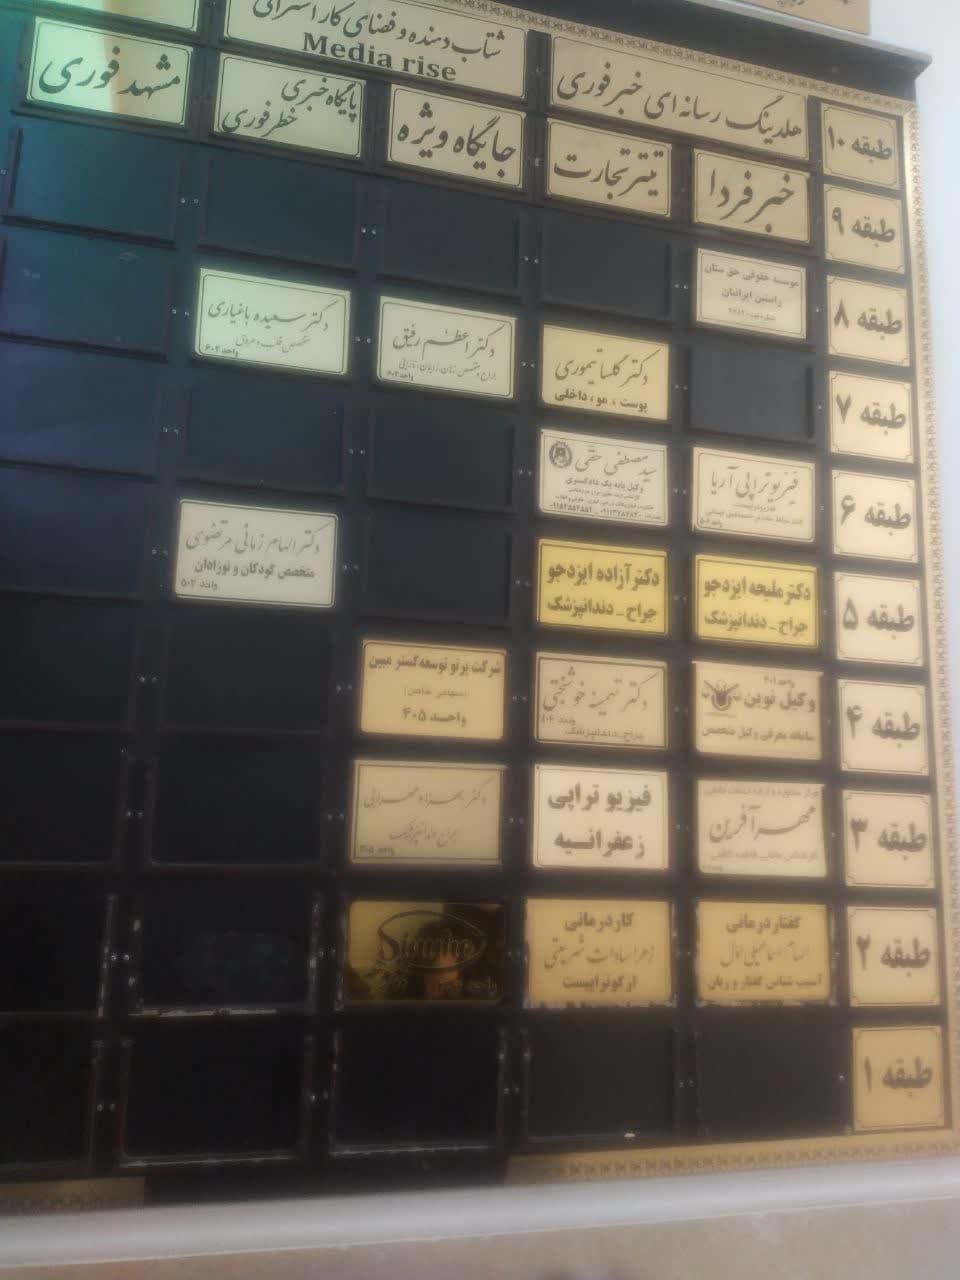 شتاب دهنده و فضای کار اشتراکی
Media rise
هلدینگ رسانه ای خبر فوری
طبقه ۱۰
خبر فردا
تیتر تجارت
جایگاه ویژه
پایگاه خبری
خطر فوری
مشهد فوری
طبقه ۹
موسسه حقوقی حق ستان
راستین ایرانیان
طبقه ۸
دکتر گلسا تیموری
پوست ، مو ، داخلی
دکتر اعظم رفیق
دکتر سعیده باغیاری
متخصص قلب و عروق
واحد ۶۰۴
طبقه ۷
فیزیوتراپی آریا
سید مصطفی حقی
وکیل پایه یک دادگستری
طبقه ۶
دکتر ملیحه ایزدجو
جراح - دندانپزشک
دکتر آزاده ایزدجو
جراح - دندانپزشک
دکتر الهام زمانی مرتضوی
متخصص کودکان و نوزادان
واحد ۵۰۲
طبقه ۵
واحد ۴۰۱
وکیل نوین
سامانه معرفی وکیل متخصص
دکتر تهمینه خوشبختی
واحد ۴۰۴
جراح - دندانپزشک
شرکت پرتو توسعه گستر مبین
(سهامی خاص)
واحد ۴۰۵
طبقه ۴
مهرآفرین
فیزیو تراپی
زعفرانیه
دکتر بهزاد مهرابی
جراح دندانپزشک
طبقه ۳
گفتاردرمانی
الهام اسماعیلی اول
آسیب شناس گفتار و زبان
کاردرمانی
زهرا سادات شریعتی
ارگوتراپیست
طبقه ۲
طبقه ۱